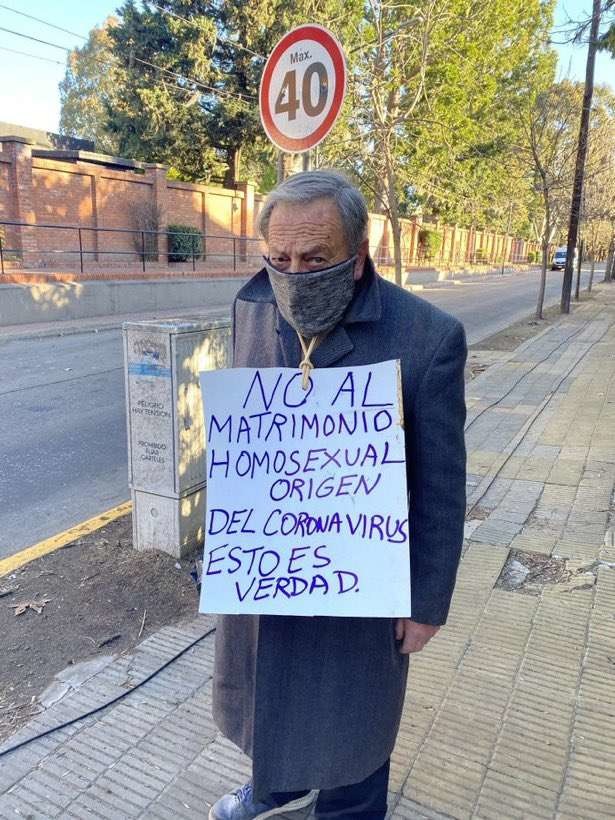 Max.
40
PELIGRO
HAY TENSION
PROHIBIDO
FIJAR
CARTELES
NO AL
MATRIMONIO
HOMOSEXUAL
ORIGEN
DEL CORONAVIRUS
ESTO ES
VERDAD.